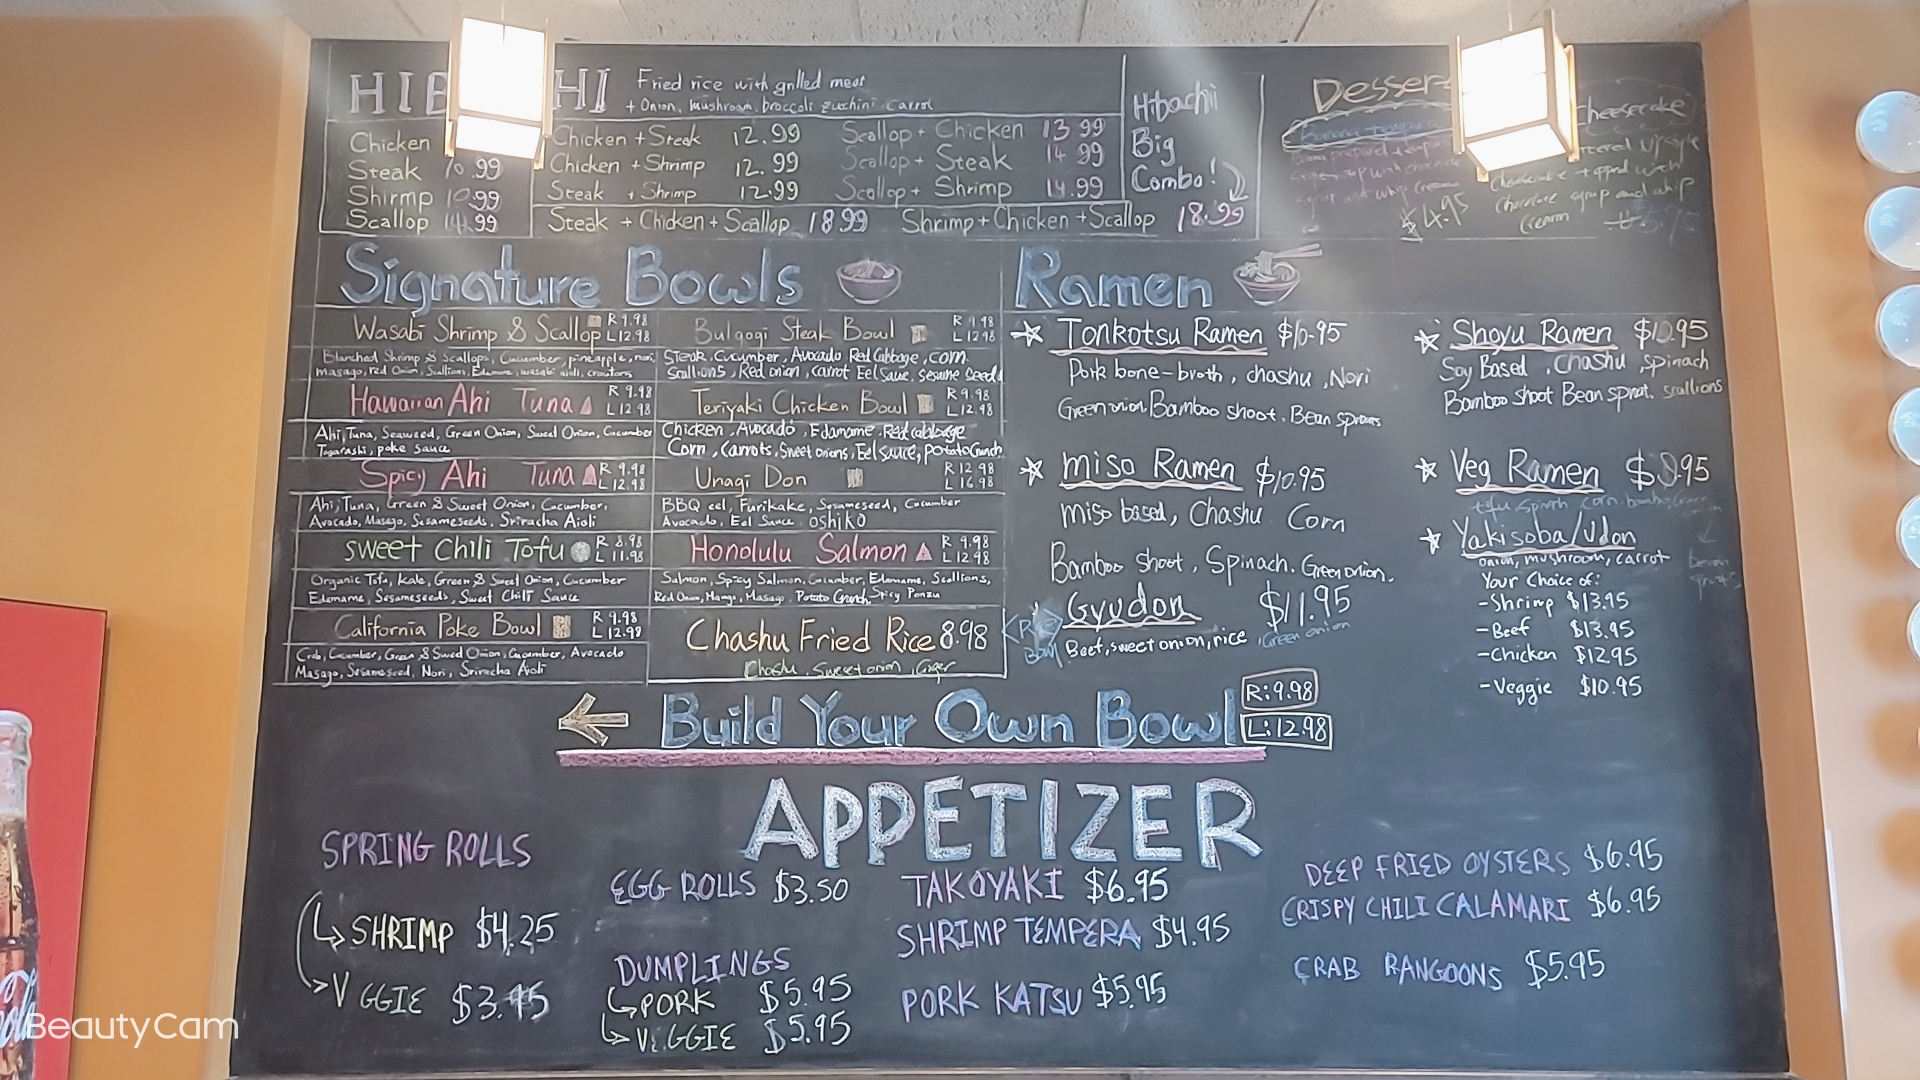 HIB HI
Fried rice with grilled meat
+ Onion, mushroom, broccoli zucchini carrot
Chicken
Steak 10.99
Shirmp 10.99
Scallop 14.99
Chicken + Steak 12.99
Chicken + Shrimp 12.99
Steak + Shrimp 12.99
Scallop + Chicken 13.99
Scallop + Steak 14.99
Scallop + Shrimp 14.99
Steak + Chicken + Scallop 18.99
Shrimp + Chicken + Scallop 18.99
Hibachi
Big
Combo!
Dessert
$4.95
Cheesecake
Cheesecake topped with
chocolate syrup and whip
cream
Signature Bowls
Wasabi Shrimp & Scallop R 9.98
L 12.98
Blanched Shrimp & Scallops, Cucumber, pineapple, nori,
Masago, red Onion, Scallion, Edamame, wasabi aioli, croutons
Hawaiian Ahi Tuna R 9.98
L 12.98
Ahi, Tuna, Seaweed, Green Onion, Sweet Onion, Cucumber
Togarashi, poke sauce
Spicy Ahi Tuna R 9.98
L 12.98
Ahi, Tuna, Green & Sweet Onion, Cucumber,
Avocado, Masago, Sesameseeds, Sriracha Aioli
Sweet Chili Tofu R 8.98
L 11.98
Organic Tofu, kale, Green & Sweet Onion, Cucumber
Edamame, Sesameseeds, Sweet Chili Sauce
California Poke Bowl R 9.98
L 12.98
Crab, Cucumber, Green & Sweet Onion, Cucumber, Avocado
Masago, Sesameseed, Nori, Sriracha Aioli
Bulgogi Steak Bowl R 9.98
L 12.98
Steak, Cucumber, Avocado Red Cabbage, corn
Scallions, Red onion, carrot Eel Sauce, sesame Seeds
Teriyaki Chicken Bowl R 9.98
L 12.98
Chicken, Avocado, Edamame, Red cabbage
Corn, carrots, Sweet onions, Eel sauce, potato Crunch
Unagi Don R 12.98
L 16.98
BBQ eel, Furikake, Sesameseed, Cucumber
Avocado, Eel Sauce oshiko
Honolulu Salmon R 9.98
L 12.98
Salmon, Spicy Salmon, Cucumber, Edamame, Scallions,
Red Onion, Mango, Masago Potato Crunch, Spicy Ponzu
Chashu Fried Rice 8.98
Chashu, Sweet onion, Ginger
Ramen
Tonkotsu Ramen $10.95
Pork bone-broth, chashu, Nori
Green onion Bamboo shoot. Bean sprouts
Miso Ramen $10.95
Miso based, Chashu Corn
Bamboo shoot, Spinach. Green onion.
Gyudon $11.95
Beef, sweet onion, rice Green onion
Rice
Bowl
Shoyu Ramen $10.95
Soy Based, Chashu, Spinach
Bamboo shoot Bean sprout. scallions
Veg Ramen
Yakisoba/Udon
onion, mushroom, carrot
Your Choice of:
-Shrimp $13.95
-Beef $13.95
-Chicken $12.95
-Veggie $10.95
Build Your Own Bowl
R: 9.98
L: 12.98
APPETIZER
SPRING ROLLS
SHRIMP $4.25
V GGIE $3.95
EGG ROLLS $3.50
DUMPLINGS
PORK $5.95
VEGGIE $5.95
TAKOYAKI $6.95
SHRIMP TEMPERA $4.95
PORK KATSU $5.95
DEEP FRIED OYSTERS $6.95
CRISPY CHILI CALAMARI $6.95
CRAB RANGOONS $5.95
BeautyCam